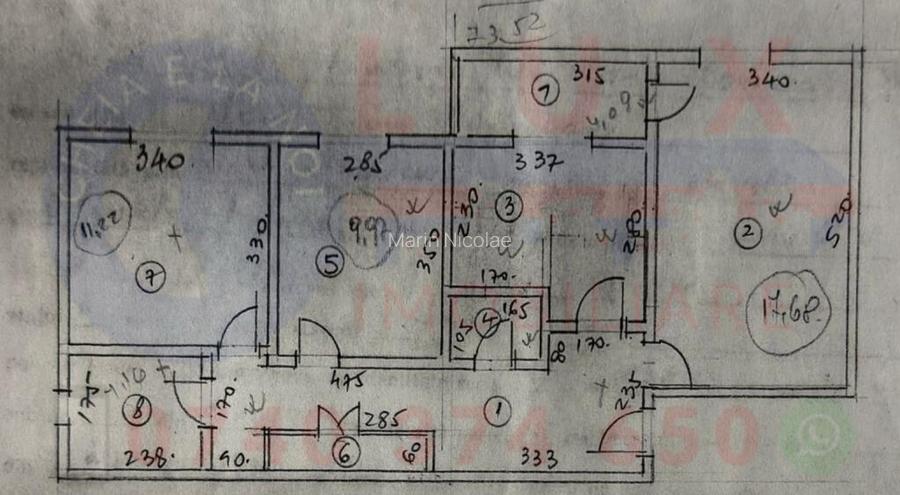 73,52
LUX
IMOBILIARE
Marin Nicolae
340.
315
1
4,09
340
285
337
3
11,22
9,97
230
280
350
330
5
7
2
520
17,68
170.
165
4
105
60
170.
475
285
175
4,16
8
170
1
235
6
60
238.
90.
333
0740 974 650